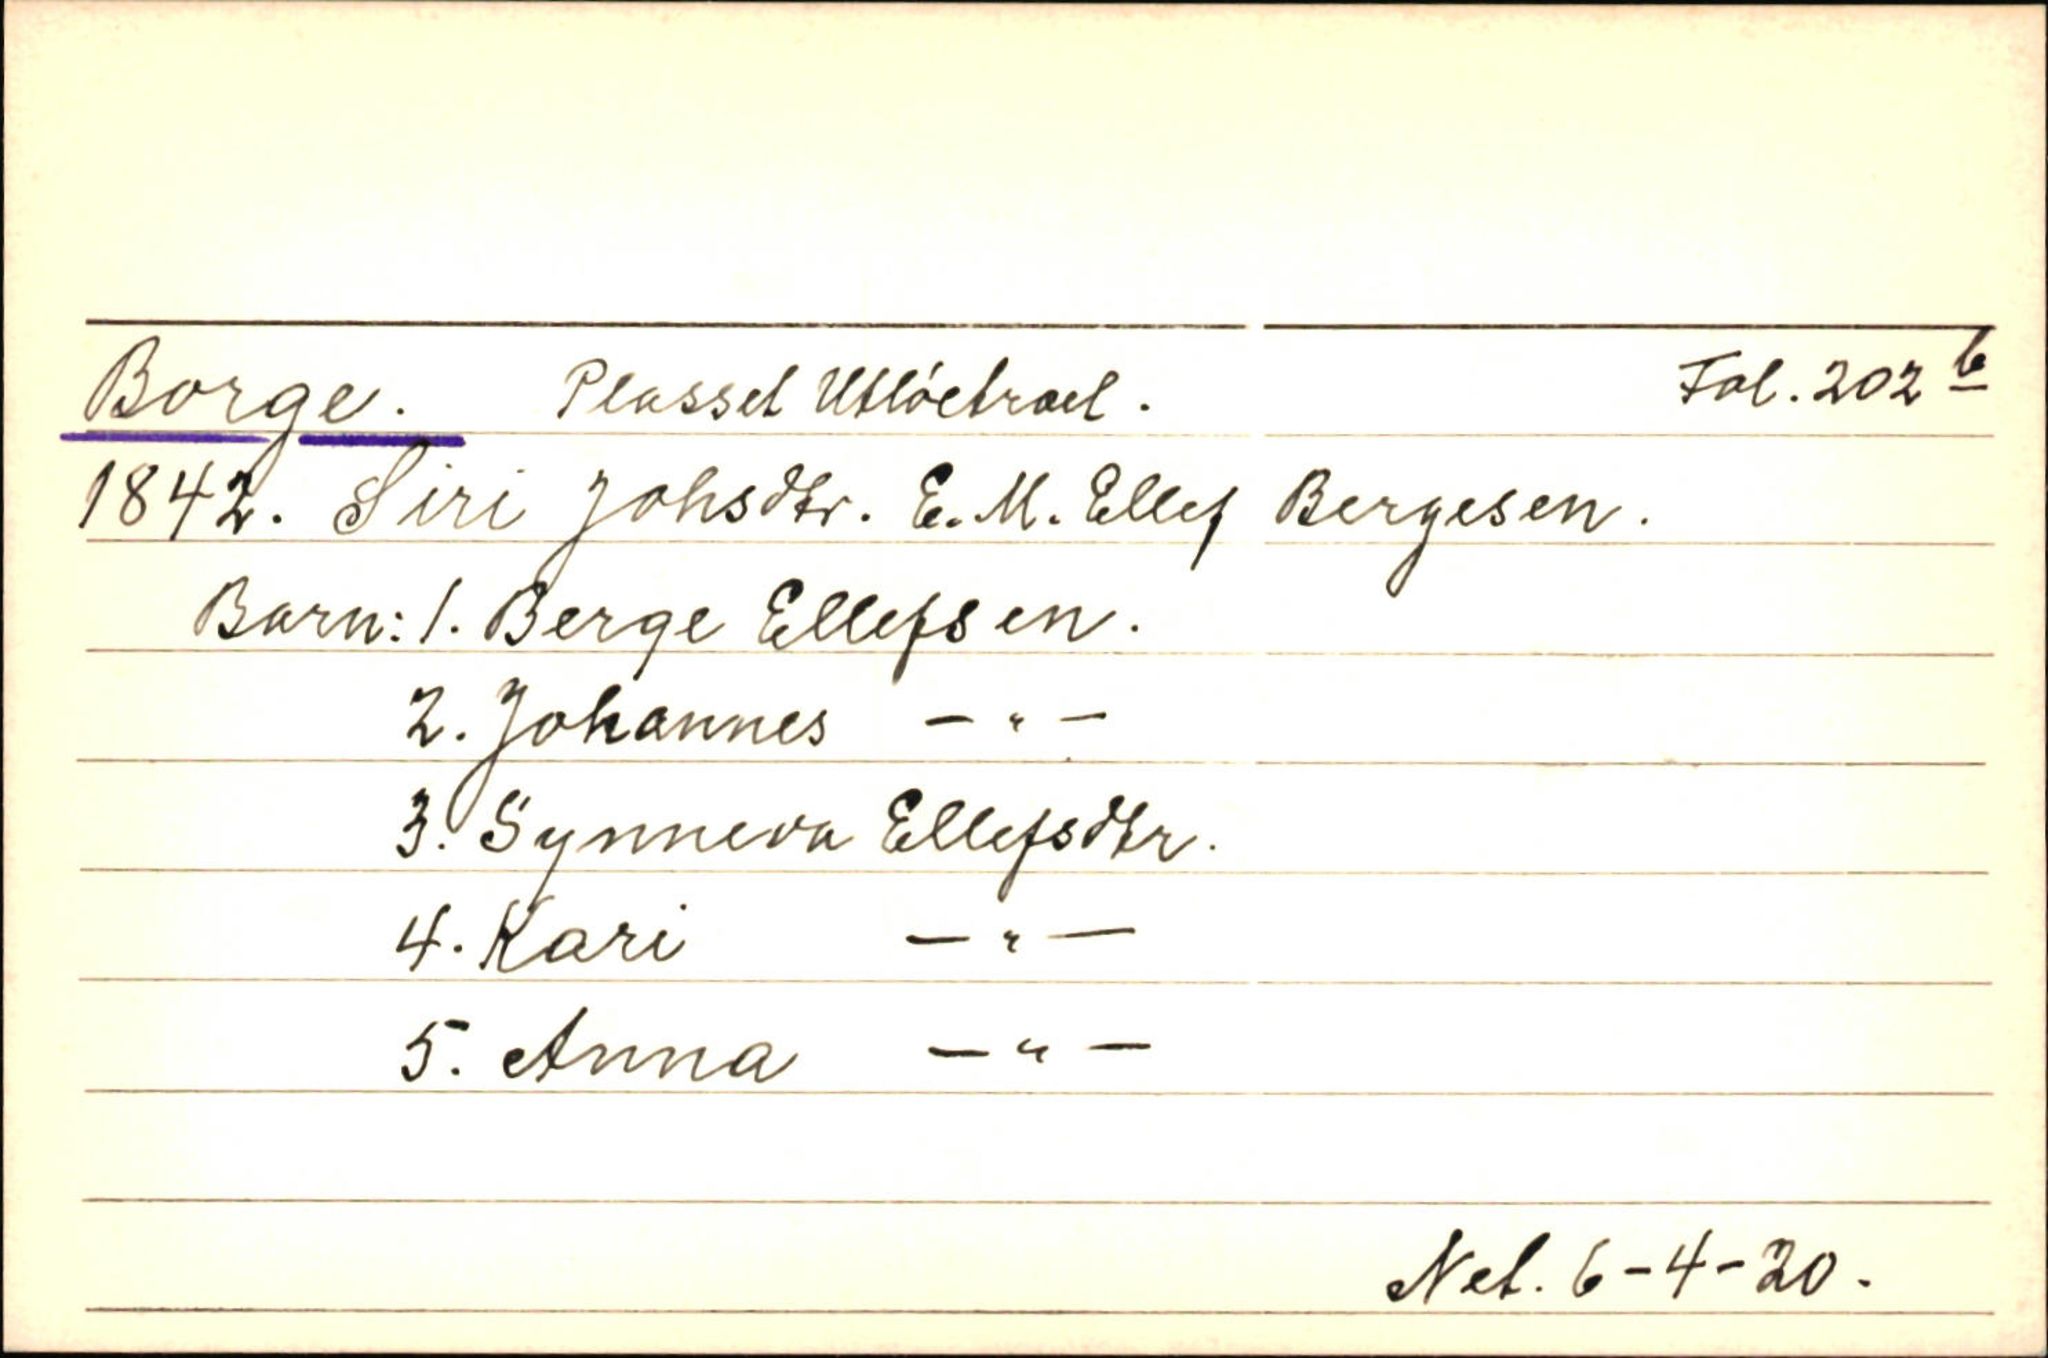 Borge. Plasset Utlöetræet. Fol. 202 b
1842. Siri Johsdtr. E. M. Ellef Bergesen.
Barn: 1. Berge Ellefsen.
2. Johannes — " —
3. Synneva Ellefsdtr.
4. Kari — " —
5. Anna — " —
Net. 6-4-20.